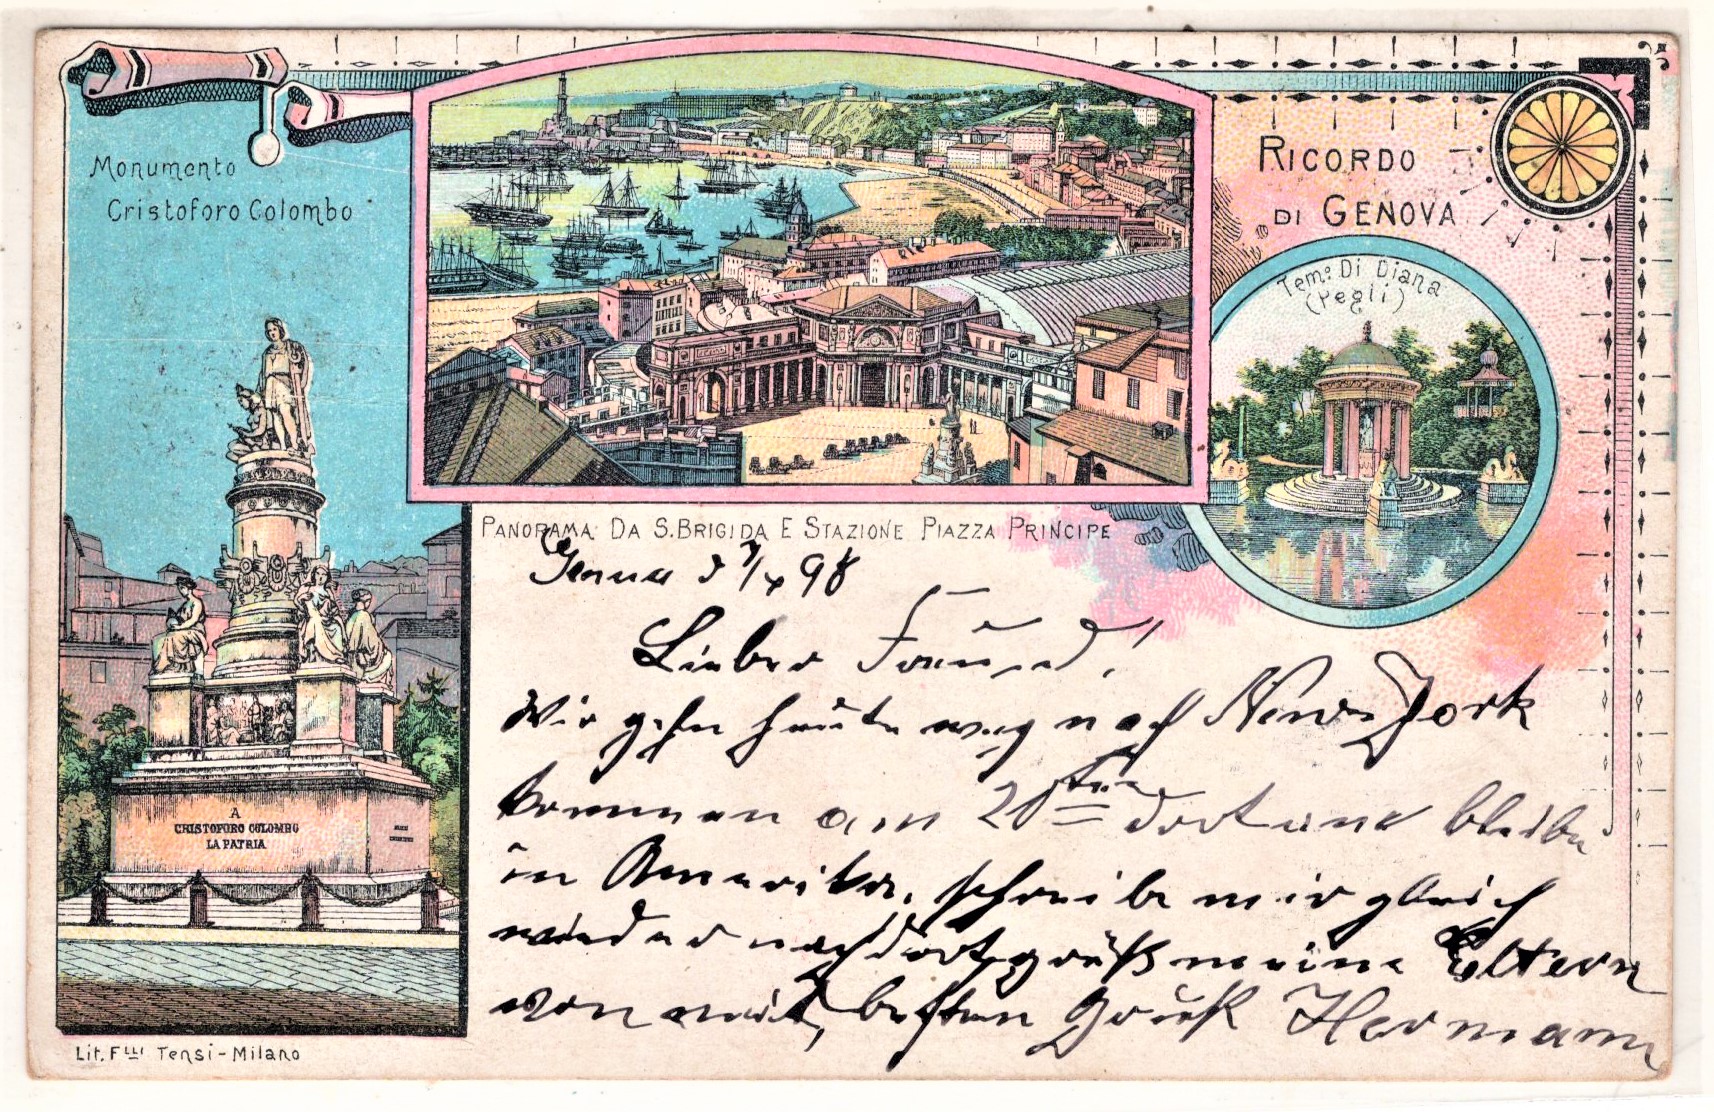 Monumento
Cristoforo Colombo
RICORDO
DI GENOVA
Tem.º Di Diana
(Pegli)
A
CRISTOFORO COLOMBO
LA PATRIA
PANORAMA DA S. BRIGIDA E STAZIONE PIAZZA PRINCIPE
Genua 7/4 98
Lieber Freund!
Wir gehn heute weg nach New-York
kommen am 20ten dort an und bleiben
in Amerika, schreibe mir gleich
wieder nach dort, grüß meine Eltern
von mir, besten Gruß Hermann
Lit. Flli Tensi-Milano